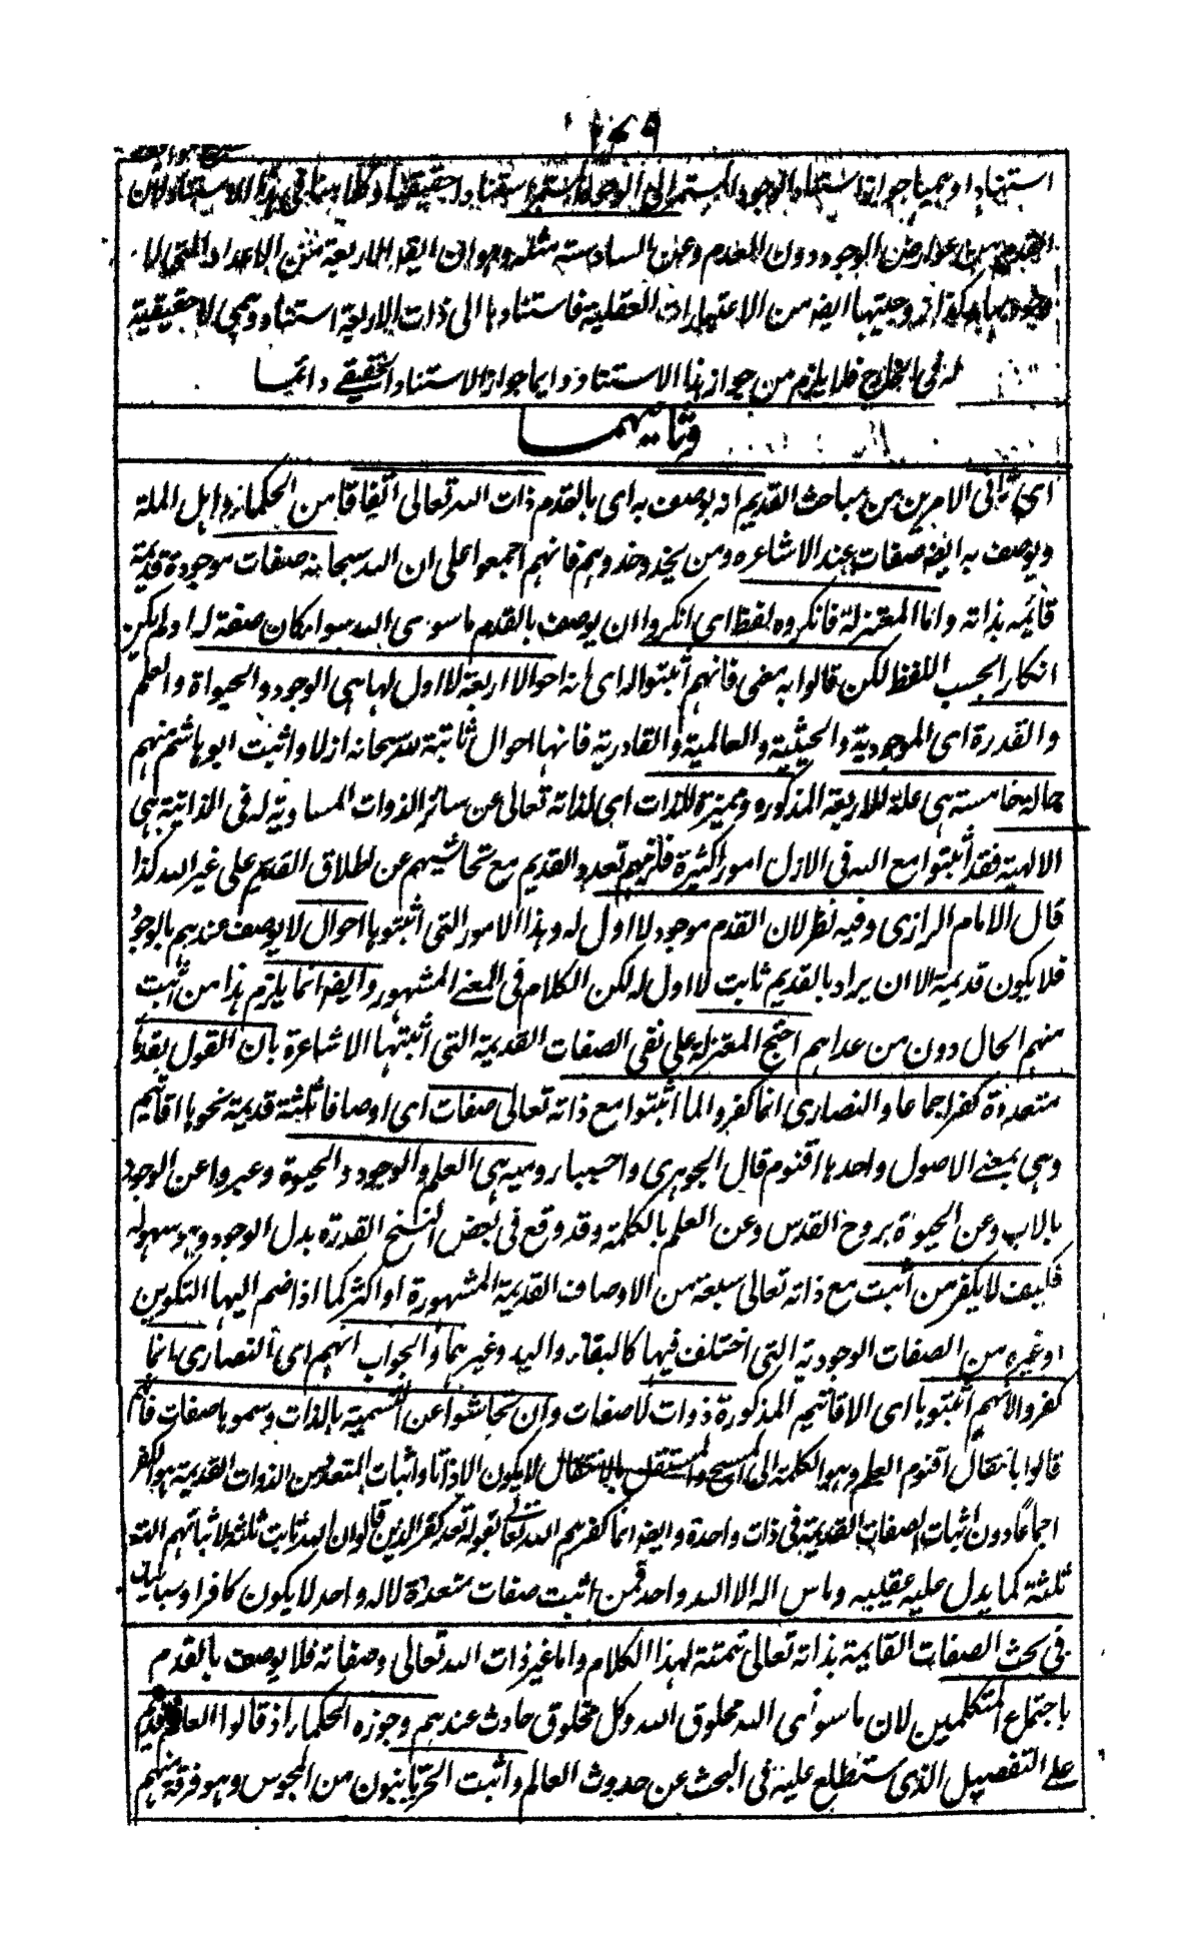 ١٧٩
شرح مواقف
استنادا وهميا جواز استناد الوجود المستمر الى الوجود المستمر استنادا حقيقيا وكلامنا في هذا الاستناد لان
القدم من عوارض الوجود دون العدم وعن السادسة مثله وهو ان الاربعة من الاعداد التي لا
وجود لها وكذا زوجيتها ايضا من الاعتبارات العقلية فاستنادها الى ذات الاربعة استناد وهمي لا حقيقية
له في الخارج فلا يلزم من جواز هذا الاستناد دايما جواز الاستناد الحقيقي دائما
وثانيهما
اي ثاني الامرين من مباحث القديم انه يوصف به اي بالقدم ذات الله تعالى اتفاقا من الحكماء و اهل الملة
ويوصف به ايضا صفات عند الاشاعرة ومن يحذو حذوهم فانهم اجمعوا على ان الله سبحانه صفات موجودة قديمة
قائمة بذاته واما المعتزلة فانكروه لفظا اي انكروا ان يوصف بالقدم ما سوى الله سوا كان صفة له او لم يكن
انكارا بحسب اللفظ لكن قالوا به معنى فانهم اثبتوا له اى له احوالا اربعة لا اول لها هى الوجود والحيواة والعلم
والقدرة اى الموجودية والحيثية والعالمية والقادرية فانها احوال ثابتة لله سبحانه ازلا واثبت ابو هاشم منهم
حالة خامسة هي علة للاربعة المذكوره ومميزة للذات اى لذاته تعالى عن سائر الذوات المساوية له فى الذاتية هى
الالهية فقد اثبتوا مع الله فى الازل امورا كثيرة فلزمهم تعدد القديم مع تحاشيهم عن اطلاق القديم على غير الله كذا
قال الامام الرازى وفيه نظر لان القدم موجود لا اول له وهذا الامور التى اثبتوها احوال لا يوصف عندهم بالوجود
فلا يكون قديمة الا ان يراد بالقديم ثابت لا اول له لكن الكلام فى المعنى المشهور وايضا انما يلزم هذا من اثبت
منهم الحال دون من عداهم احتج المعتزلة على نفى الصفات القديمة التى اثبتها الاشاعرة بان القول بقدما
متعددة كفر اجماعا والنصارى انما كفروا لما اثبتوا مع ذاته تعالى صفات اى اوصافا ثلثة قديمة سموها اقانيم
وهى بمعنى الاصول واحدها اقنوم قال الجوهرى واحسبها رومية هى العلم والوجود والحيوة وعبروا عن الوجود
بالاب وعن الحيوة بروح القدس وعن العلم بالكلمة وقد وقع فى بعض النسخ القدرة بدل الوجود وهو سهو له
فكيف لا يكفر من اثبت مع ذاته تعالى سبعة من الاوصاف القديمة المشهورة او اكثر كما اذا ضم اليها التكوين
او غيره من الصفات الوجودية التى اختلف فيها كالبقاء واليد وغيرهما والجواب انهم اى النصارى انما
كفروا لانهم اثبتوها اى الاقانيم المذكورة ذوات لا صفات وان تحاشوا عن التسمية بالذات وسموها صفات فانهم
قالوا بانتقال اقنوم العلم وهو الكلمة الى المسيح والمستقل بالانتقال لا يكون الا ذاتا واثبات المتعدد من الذوات القديمة هو الكفر
اجماعا دون اثبات الصفات القديمة فى ذات واحدة وايضا انما كفرهم الله تعالى بقوله لقد كفر الذين قالوا ان الله ثالث ثلثة لاثباتهم الهة
ثلثة كما يدل عليه عقيبه وما من اله الا اله واحد فمن اثبت صفات متعددة لاله واحد لا يكون كافرا وسياتيك
فى بحث الصفات القايمة بذاته تعالى تتمة لهذا الكلام واما غير ذات الله تعالى وصفاته فلا يوصف بالقدم
باجتماع المتكلمين لان ما سوى الله مخلوق الله وكل مخلوق حادث عندهم وجوزه الحكماء اذ قالوا العالم قديم
على التفصيل الذى ستطلع عليه فى البحث عن حدوث العالم واثبت الحرنانيون من المجوس وهو فرقة منهم